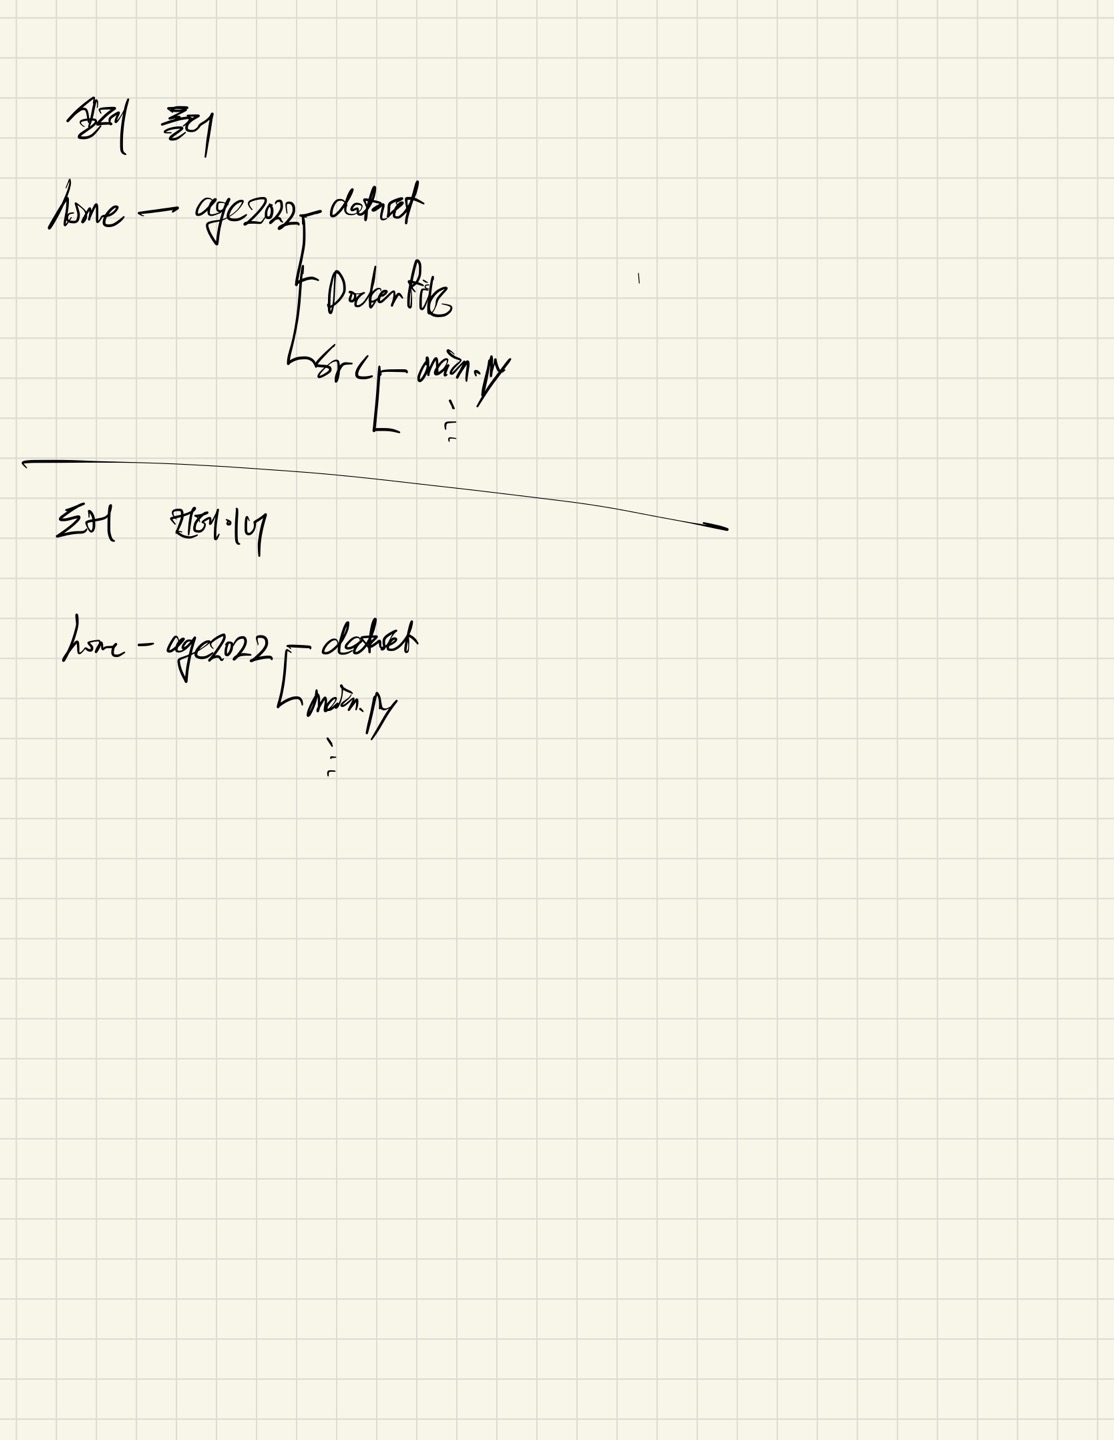 실제 폴더
home — age2022 - dataset
Dockerfile
src - main.py
도커 컨테이너
home - age2022 - dataset
main.py